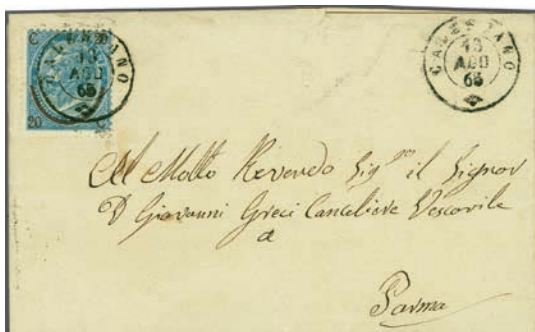 C
20 C
CALESTANO
13
AGO
65
CALESTANO
13
AGO
65
Al Molto Revendo Sigre il Signor
D Giovanni Greci Canceliere Vescovile
a
Parma